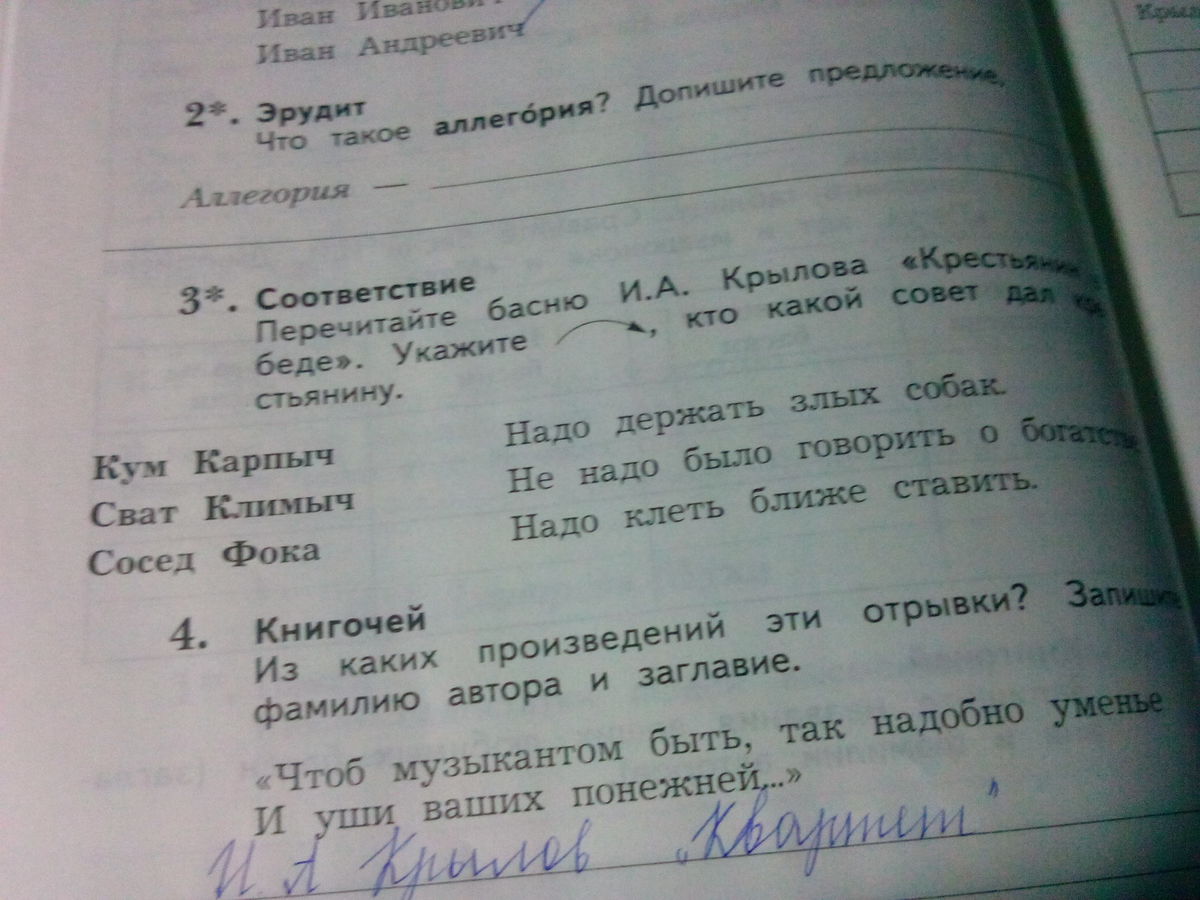 Иван Иванович
Иван Андреевич
Крыл
2*. Эрудит
Что такое аллего́рия? Допишите предложение.
Аллегория —
3*. Соответствие
Перечитайте басню И.А. Крылова «Крестьянин
беде». Укажите , кто какой совет дал кре-
стьянину.
Кум Карпыч Надо держать злых собак.
Сват Климыч Не надо было говорить о богатстве
Сосед Фока Надо клеть ближе ставить.
4. Книгочей
Из каких произведений эти отрывки? Запишите
фамилию автора и заглавие.
«Чтоб музыкантом быть, так надобно уменье
И уши ваших понежней...»
И. А Крылов „Квартет"